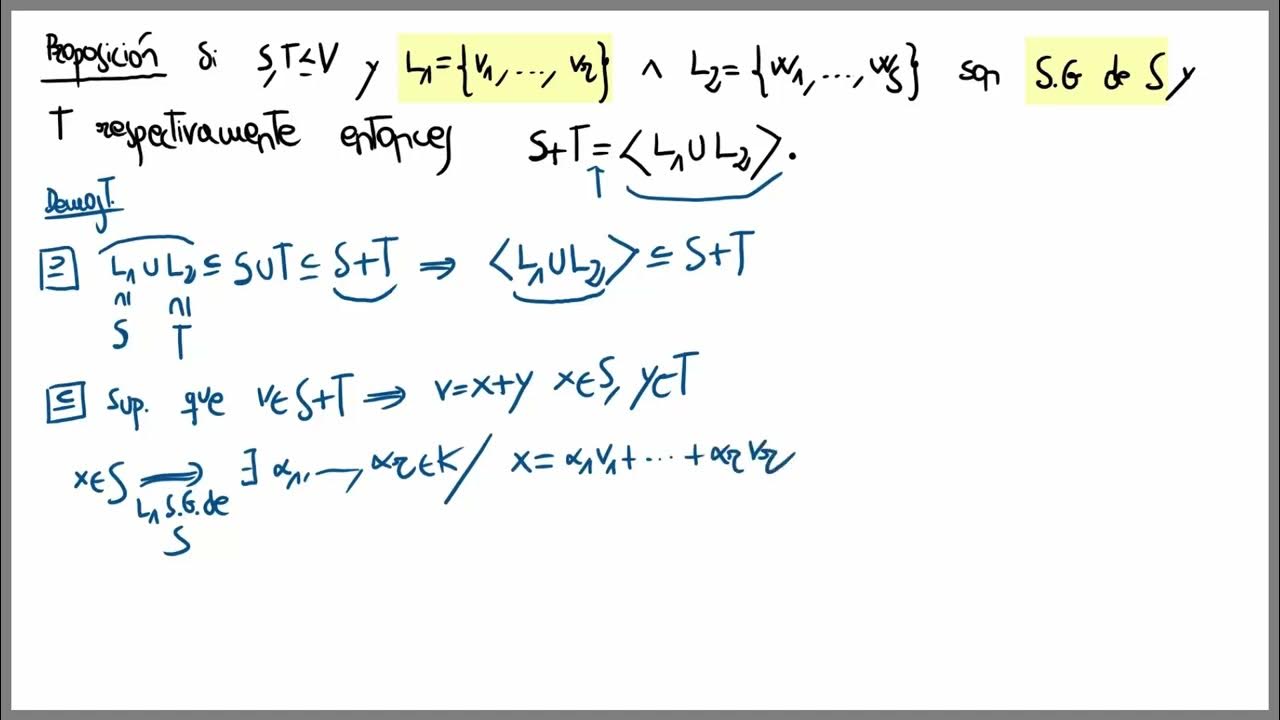 Proposición Si S,T≤V y L₁={v₁,...,vᵣ} ∧ L₂={w₁,...,wₛ} son S.G de S y
T respectivamente entonces S+T=⟨L₁∪L₂⟩.
↑
Demost.
⊇ L₁∪L₂⊆S∪T⊆S+T ⇒ ⟨L₁∪L₂⟩⊆S+T
∩I ∩I
S T
⊆ Sup. que v∈S+T ⇒ v=x+y x∈S, y∈T
x∈S ⇒ ∃ α₁,...,αᵣ∈K/ x=α₁v₁+...+αᵣvᵣ
L₁ S.G. de
S